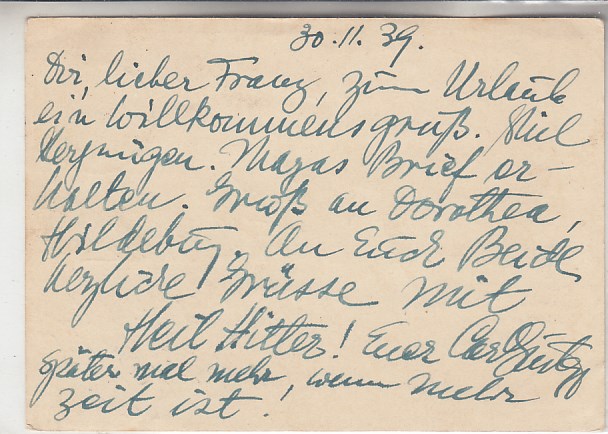 30.11.39.
Dir, lieber Franz, zum Urlaub
ein Willkommensgruß. Viel
Vergnügen. Magas Brief er-
halten. Gruß an Dorothea,
Hildeburg. An Euch Beide
herzliche Grüsse mit
Heil Hitler! Euer Carl
später mal mehr, wenn mehr
Zeit ist!